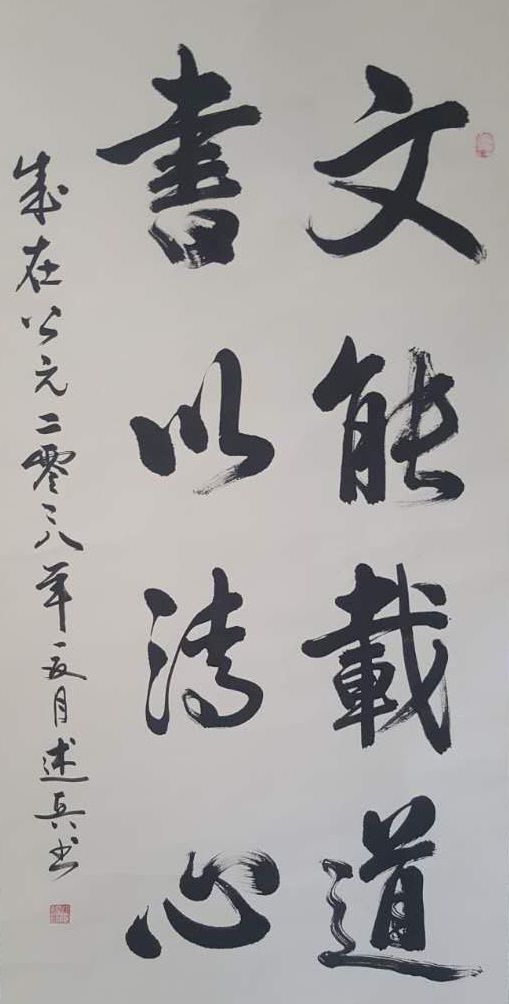 文能載道
書以清心
歲在公元二零一八年夏月述兵书